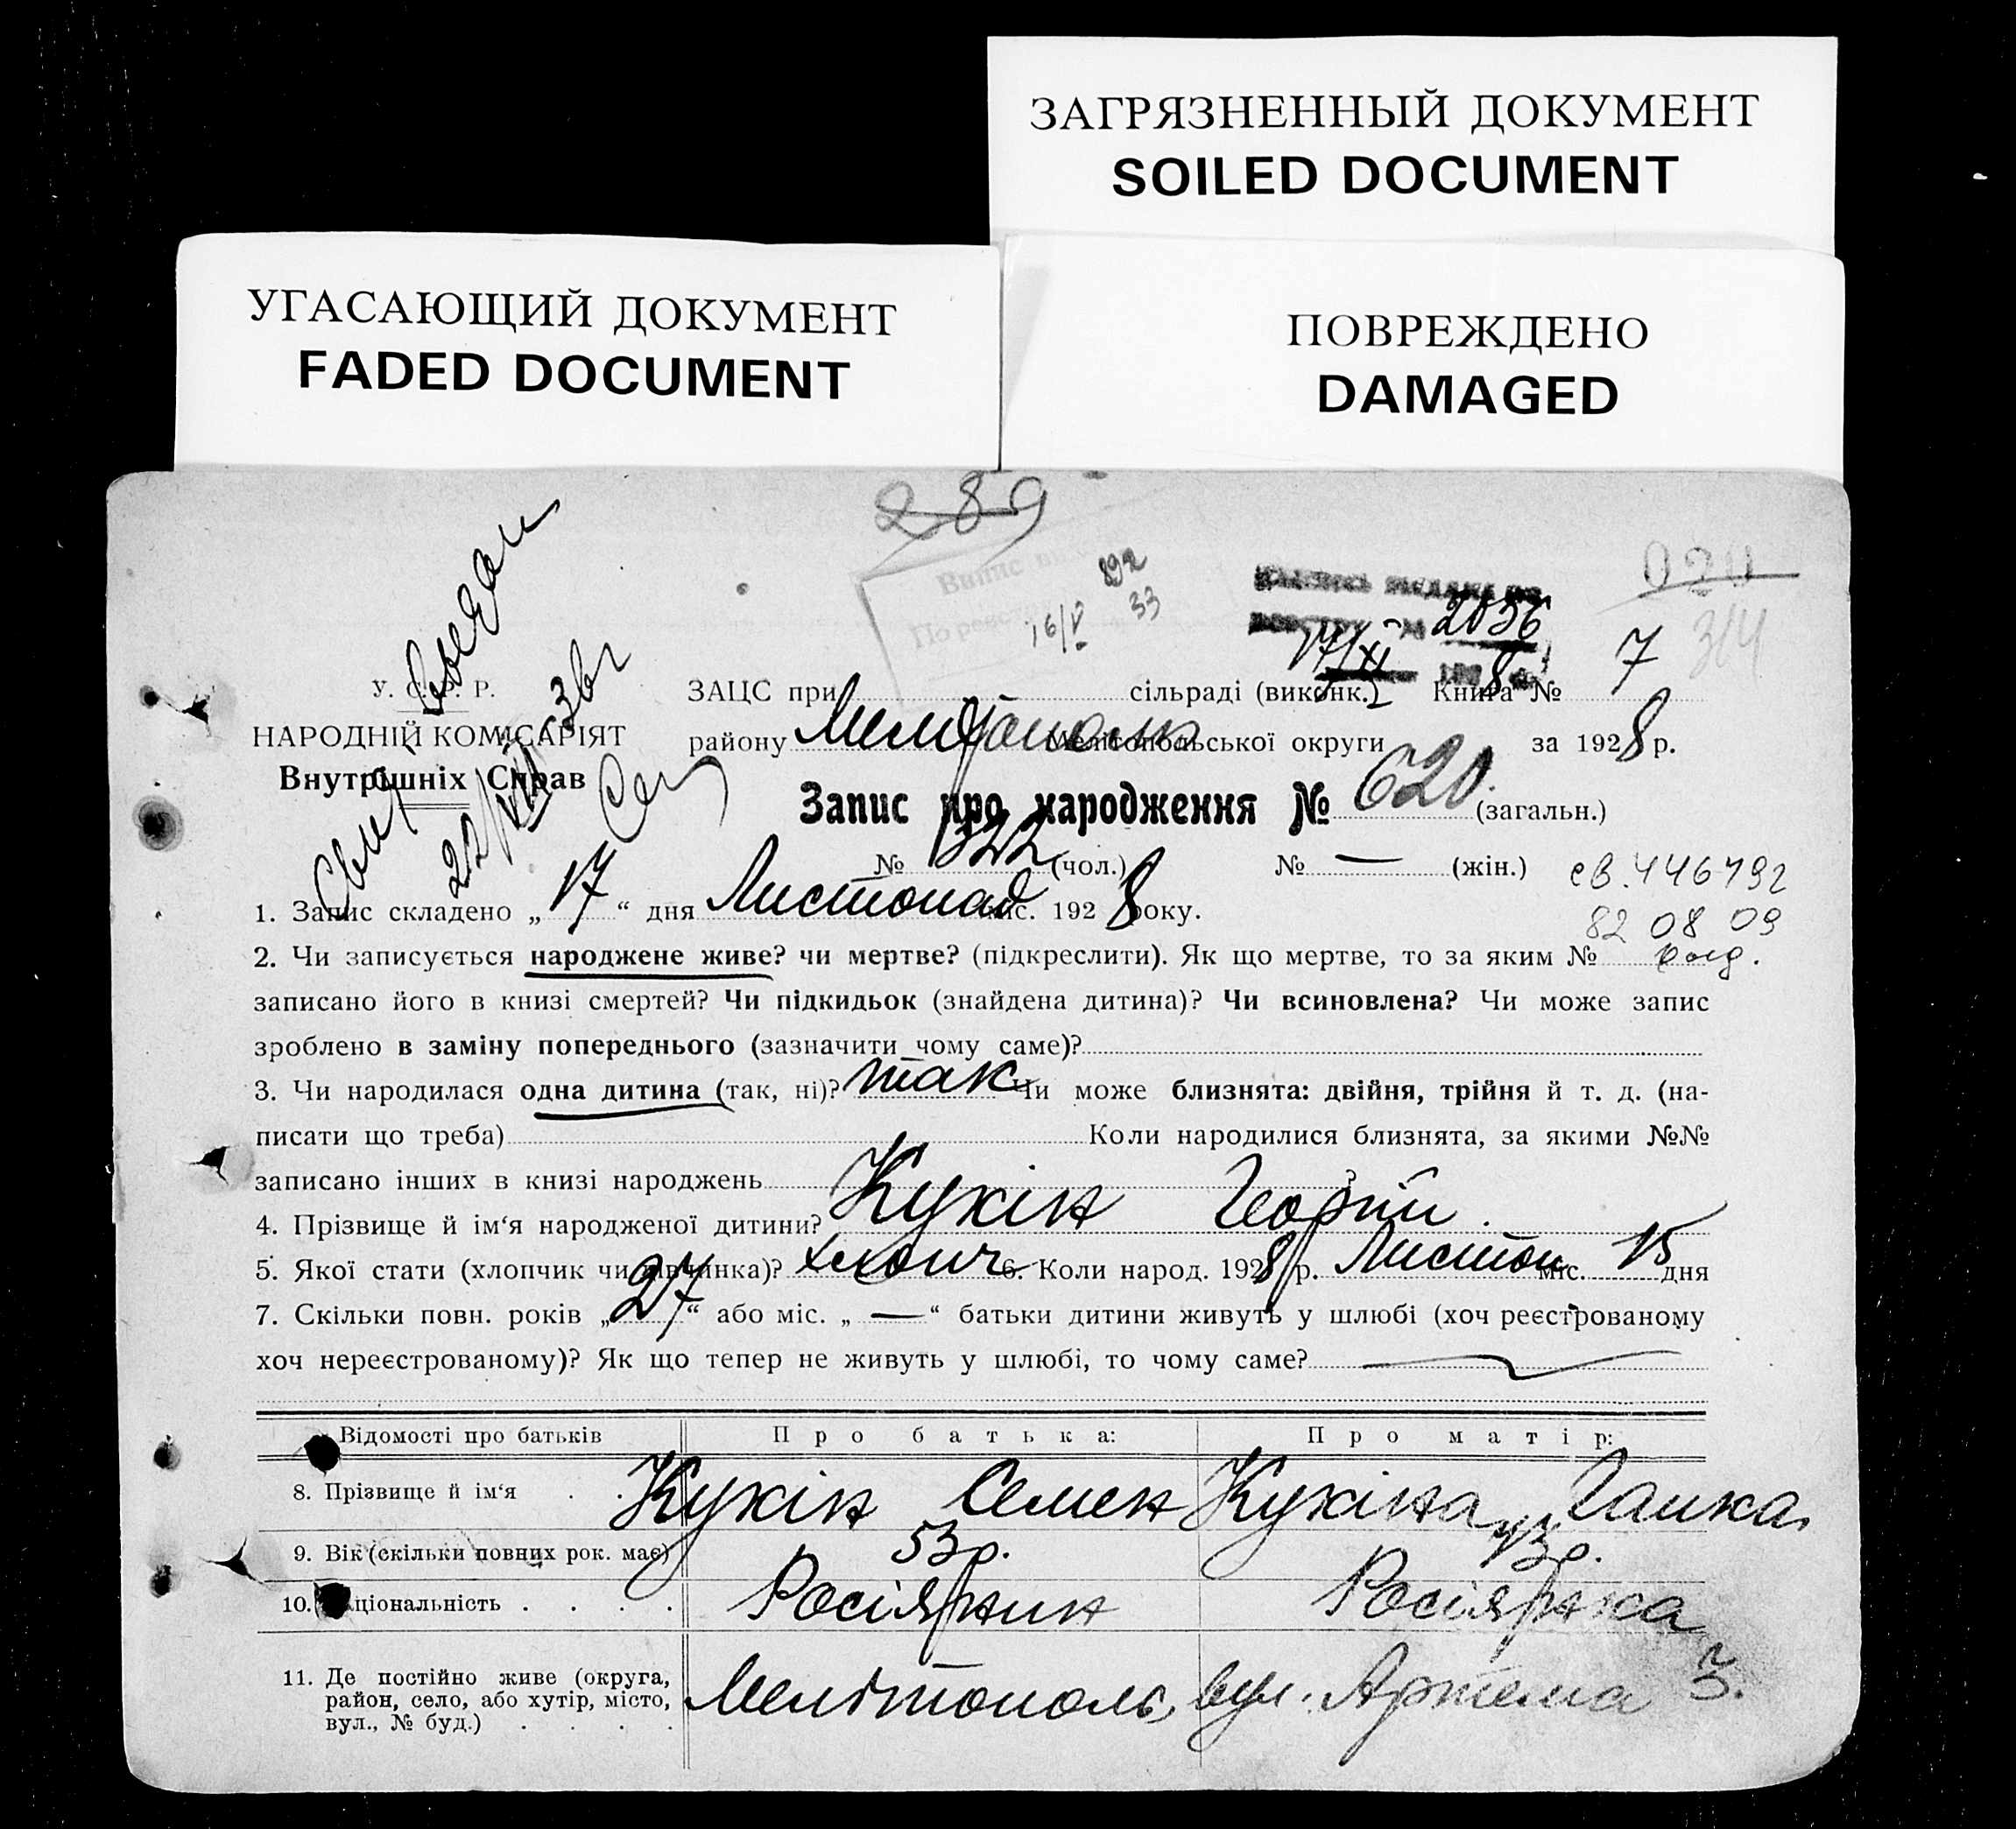 ЗАГРЯЗНЕННЫЙ ДОКУМЕНТ
SOILED DOCUMENT
УГАСАЮЩИЙ ДОКУМЕНТ
FADED DOCUMENT
ПОВРЕЖДЕНО
DAMAGED
289
020
314
892
33
16/V
2036
17/XI 8
У. С. Р. Р.
НАРОДНІЙ КОМІСАРІЯТ
Внутрішніх Справ
22/VIII 36г
ЗАЦС при сільраді (виконк.) Книга № 7
району Мелітополь Мелітопольської округи за 1928 р.
Запис про народження № 620 (загальн.)
№ 322 (чол.) № — (жін.)
св. 446792
82 08 09
1. Запис складено „17“ дня Листопад міс. 1928 року.
2. Чи записується народжене живе? чи мертве? (підкреслити). Як що мертве, то за яким №
записано його в книзі смертей? Чи підкидьок (знайдена дитина)? Чи всиновлена? Чи може запис
зроблено в заміну попереднього (зазначити чому саме)?
3. Чи народилася одна дитина (так, ні)? так Чи може близнята: двійня, трійня й т. д. (на-
писати що треба) Коли народилися близнята, за якими №№
записано інших в книзі народжень
4. Прізвище й ім‘я народженої дитини? Кухін Георгій.
5. Якої стати (хлопчик чи дівчинка)? хлопч 6. Коли народ. 1928 р. Листоп міс. 15 дня
7. Скільки повн. років „27“ або міс. „—“ батьки дитини живуть у шлюбі (хоч реєстрованому
хоч нереєстрованому)? Як що тепер не живуть у шлюбі, то чому саме?
Відомості про батьків Про батька: Про матір:
8. Прізвище й ім‘я . . Кухін Семен Кухіна Ганка
9. Вік (скільки повних рок. має) 53 р. 43 р.
10. Національність . . . . Росіянин Росіянка
11. Де постійно живе (округа,
район, село, або хутір, місто,
вул., № буд.) . . . .
Мелітополь, вул. Артема 3.